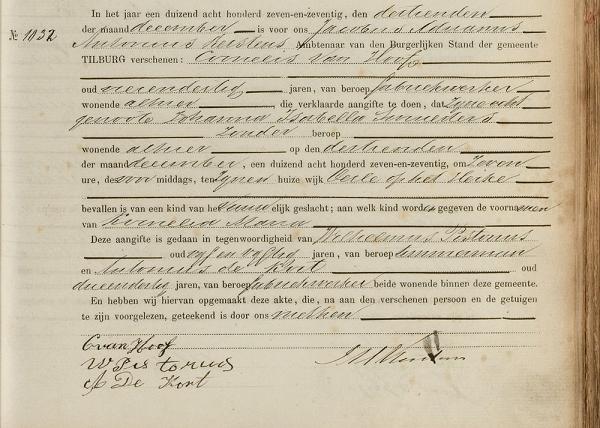 In het jaar een duizend acht honderd zeven-en-zeventig, den dertienden
№ 1032
der maand december is voor ons Jacobus Adrianus
Antonius Kerstens Ambtenaar van den Burgerlijken Stand der gemeente
TILBURG verschenen: Cornelis van Hoof
oud vierendertig jaren, van beroep fabriekwerker
wonende alhier, die verklaarde aangifte te doen, dat zijne echt
genoote Johanna Isabella
zonder beroep
wonende alhier op den dertienden
der maand december, een duizend acht honderd zeven-en-zeventig, om zeven
ure, des voor middags, ten zijnen huize wijk op het Heike
bevallen is van een kind van het elijk geslacht; aan welk kind worden gegeven de voornamen
van Kornelia Maria
Deze aangifte is gedaan in tegenwoordigheid van Wilhelmus Pistorius
oud vijf en vijftig jaren, van beroep timmerman
en Antonius de Kort oud
drieendertig jaren, van beroep fabriekwerker beide wonende binnen deze gemeente.
En hebben wij hiervan opgemaakt deze akte, die, na aan den verschenen persoon en de getuigen
te zijn voorgelezen, geteekend is door ons met hen
C van Hoof
W Pistorius
A De Kort